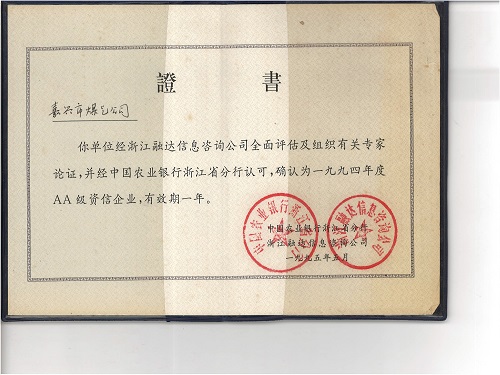 證書
嘉兴市煤气公司
你单位经浙江融达信息咨询公司全面评估及组织有关专家
论证，并经中国农业银行浙江省分行认可，确认为一九九四年度
AA级资信企业，有效期一年。
中国农业银行浙江省分行
浙江融达信息咨询公司
一九九五年五月